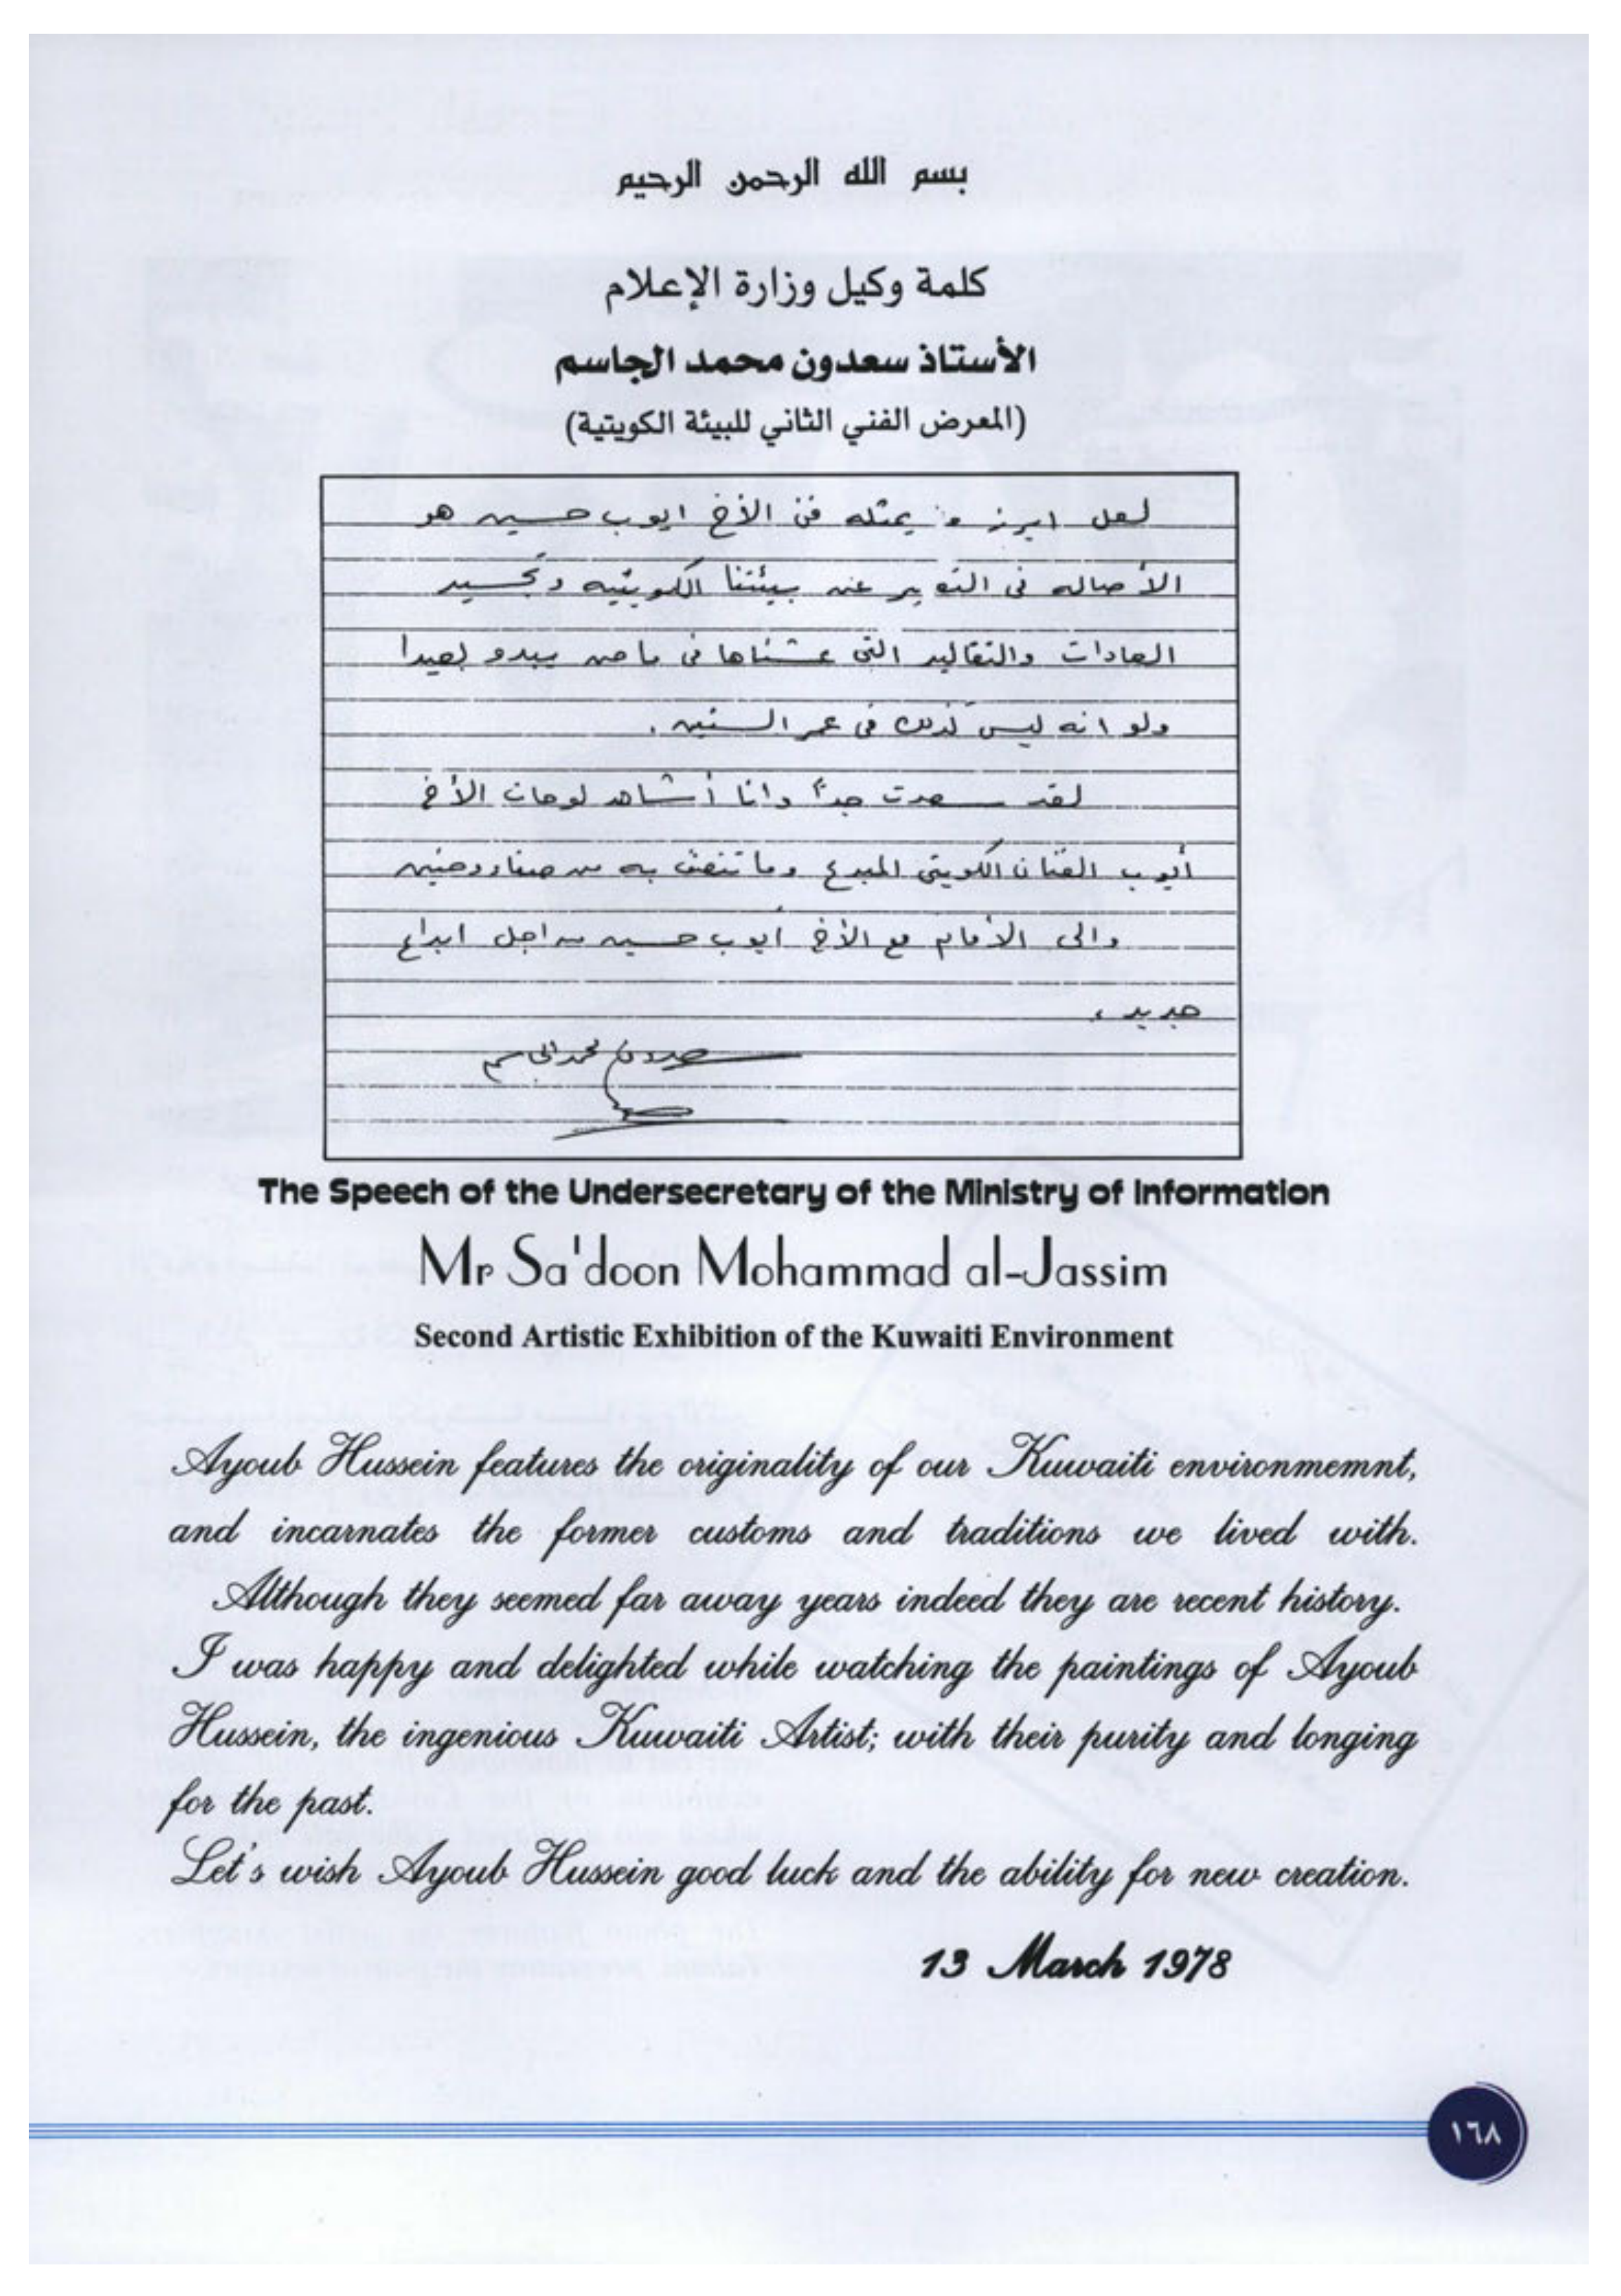 بسم الله الرحمن الرحيم
كلمة وكيل وزارة الإعلام
الأستاذ سعدون محمد الجاسم
(المعرض الفني الثاني للبيئة الكويتية)
لعل ابرز ما يمثله فن الأخ ايوب حسين هو
الأصاله في التعبير عن بيئتنا الكويتيه وتجسيد
العادات والتقاليد التي عشناها في ماضى يبدو بعيدا
ولو انه ليس كذلك في عمر السنين .
لقد سعدت جداً وانا أشاهد لوحات الأخ
أيوب الفنان الكويتي المبدع وما تتصف به من صفاء وحنين
والى الأمام مع الأخ أيوب حسين من اجل ابداع
جديد ،
سعدون محمد الجاسم
The Speech of the Undersecretary of the Ministry of Information
Mr Sa'doon Mohammad al-Jassim
Second Artistic Exhibition of the Kuwaiti Environment
Ayoub Hussein features the originality of our Kuwaiti environmemnt,
and incarnates the former customs and traditions we lived with.
Although they seemed far away years indeed they are recent history.
I was happy and delighted while watching the paintings of Ayoub
Hussein, the ingenious Kuwaiti Artist; with their purity and longing
for the past.
Let's wish Ayoub Hussein good luck and the ability for new creation.
13 March 1978
١٦٨